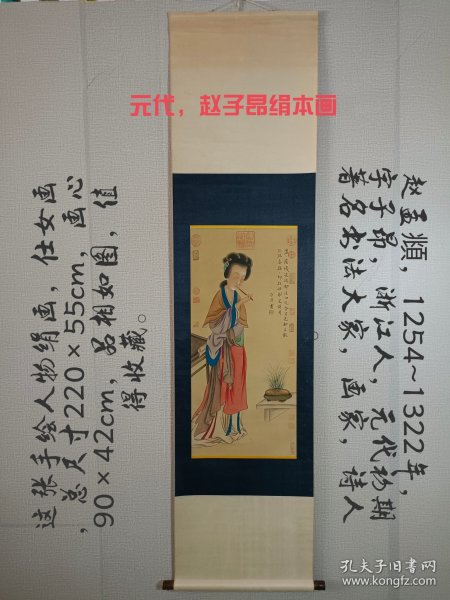 元代，赵子昂绢本画
赵孟頫，1254~1322年，
字子昂，浙江人，元代初期
著名书法大家，画家，诗人
这张手绘人物绢画，仕女画
，总尺寸220×55cm，画心
90×42cm，品相如图，值
得收藏。
孔夫子旧书网
www.kongfz.com